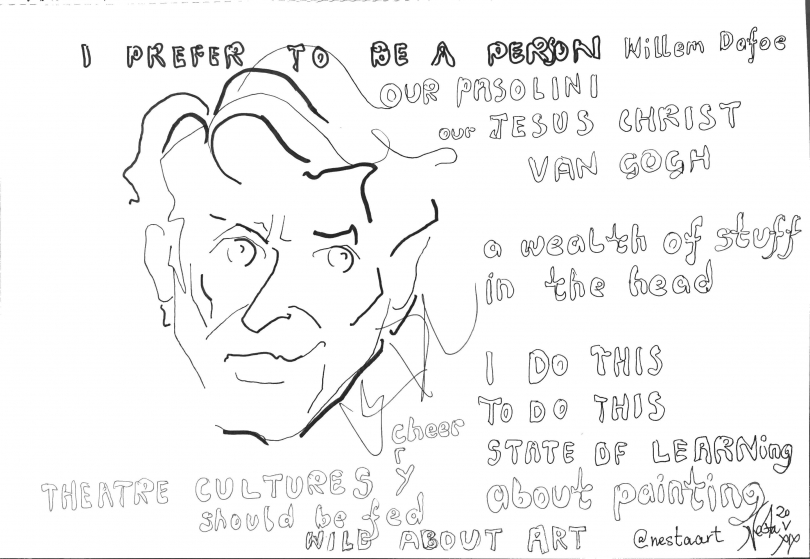 I PREFER TO BE A PERSON Willem Dafoe
OUR PASOLINI
our JESUS CHRIST
VAN GOGH
a wealth of stuff
in the head
I DO THIS
TO DO THIS
STATE OF LEARNing
about painting
cheer
cry
THEATRE CULTURES
should be fed
WILD ABOUT ART
@nestaart
20